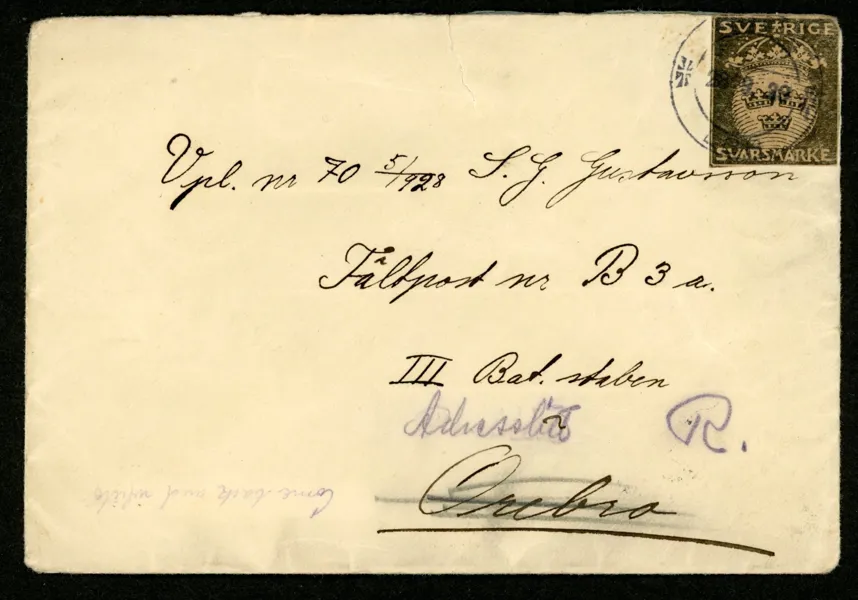 SVERIGE
SVARSMÄRKE
Vpl. nr 70 5/1928 S. G. Gustavsson
Fältpost nr B 3 a.
III Bat. staben
R.
Örebro
Come back and